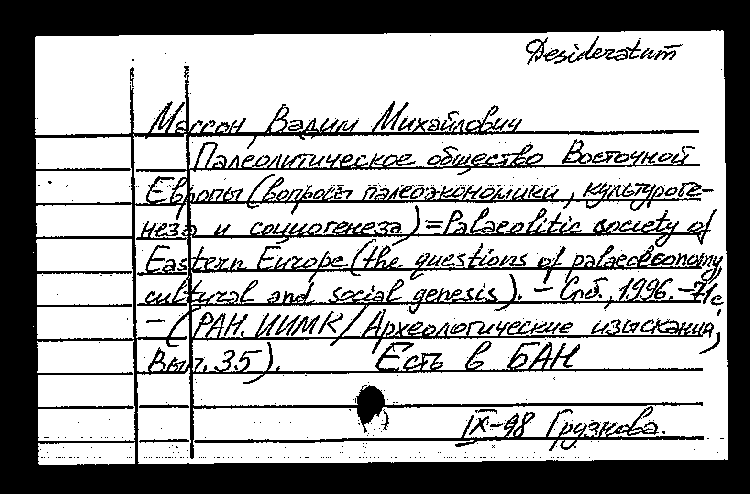 Desideratum
Массон, Вадим Михайлович
Палеолитическое общество Восточной
Европы (вопросы палеоэкономики, культуроге-
неза и социогенеза) = Palaeolitic society of
Eastern Europe (the questions of palaeoeconomy,
cultural and social genesis). - Спб., 1996. - 71с.
- (РАН. ИИМК / Археологические изыскания,
Вып. 35). Есть в БАН
IX-98 Грузнова.